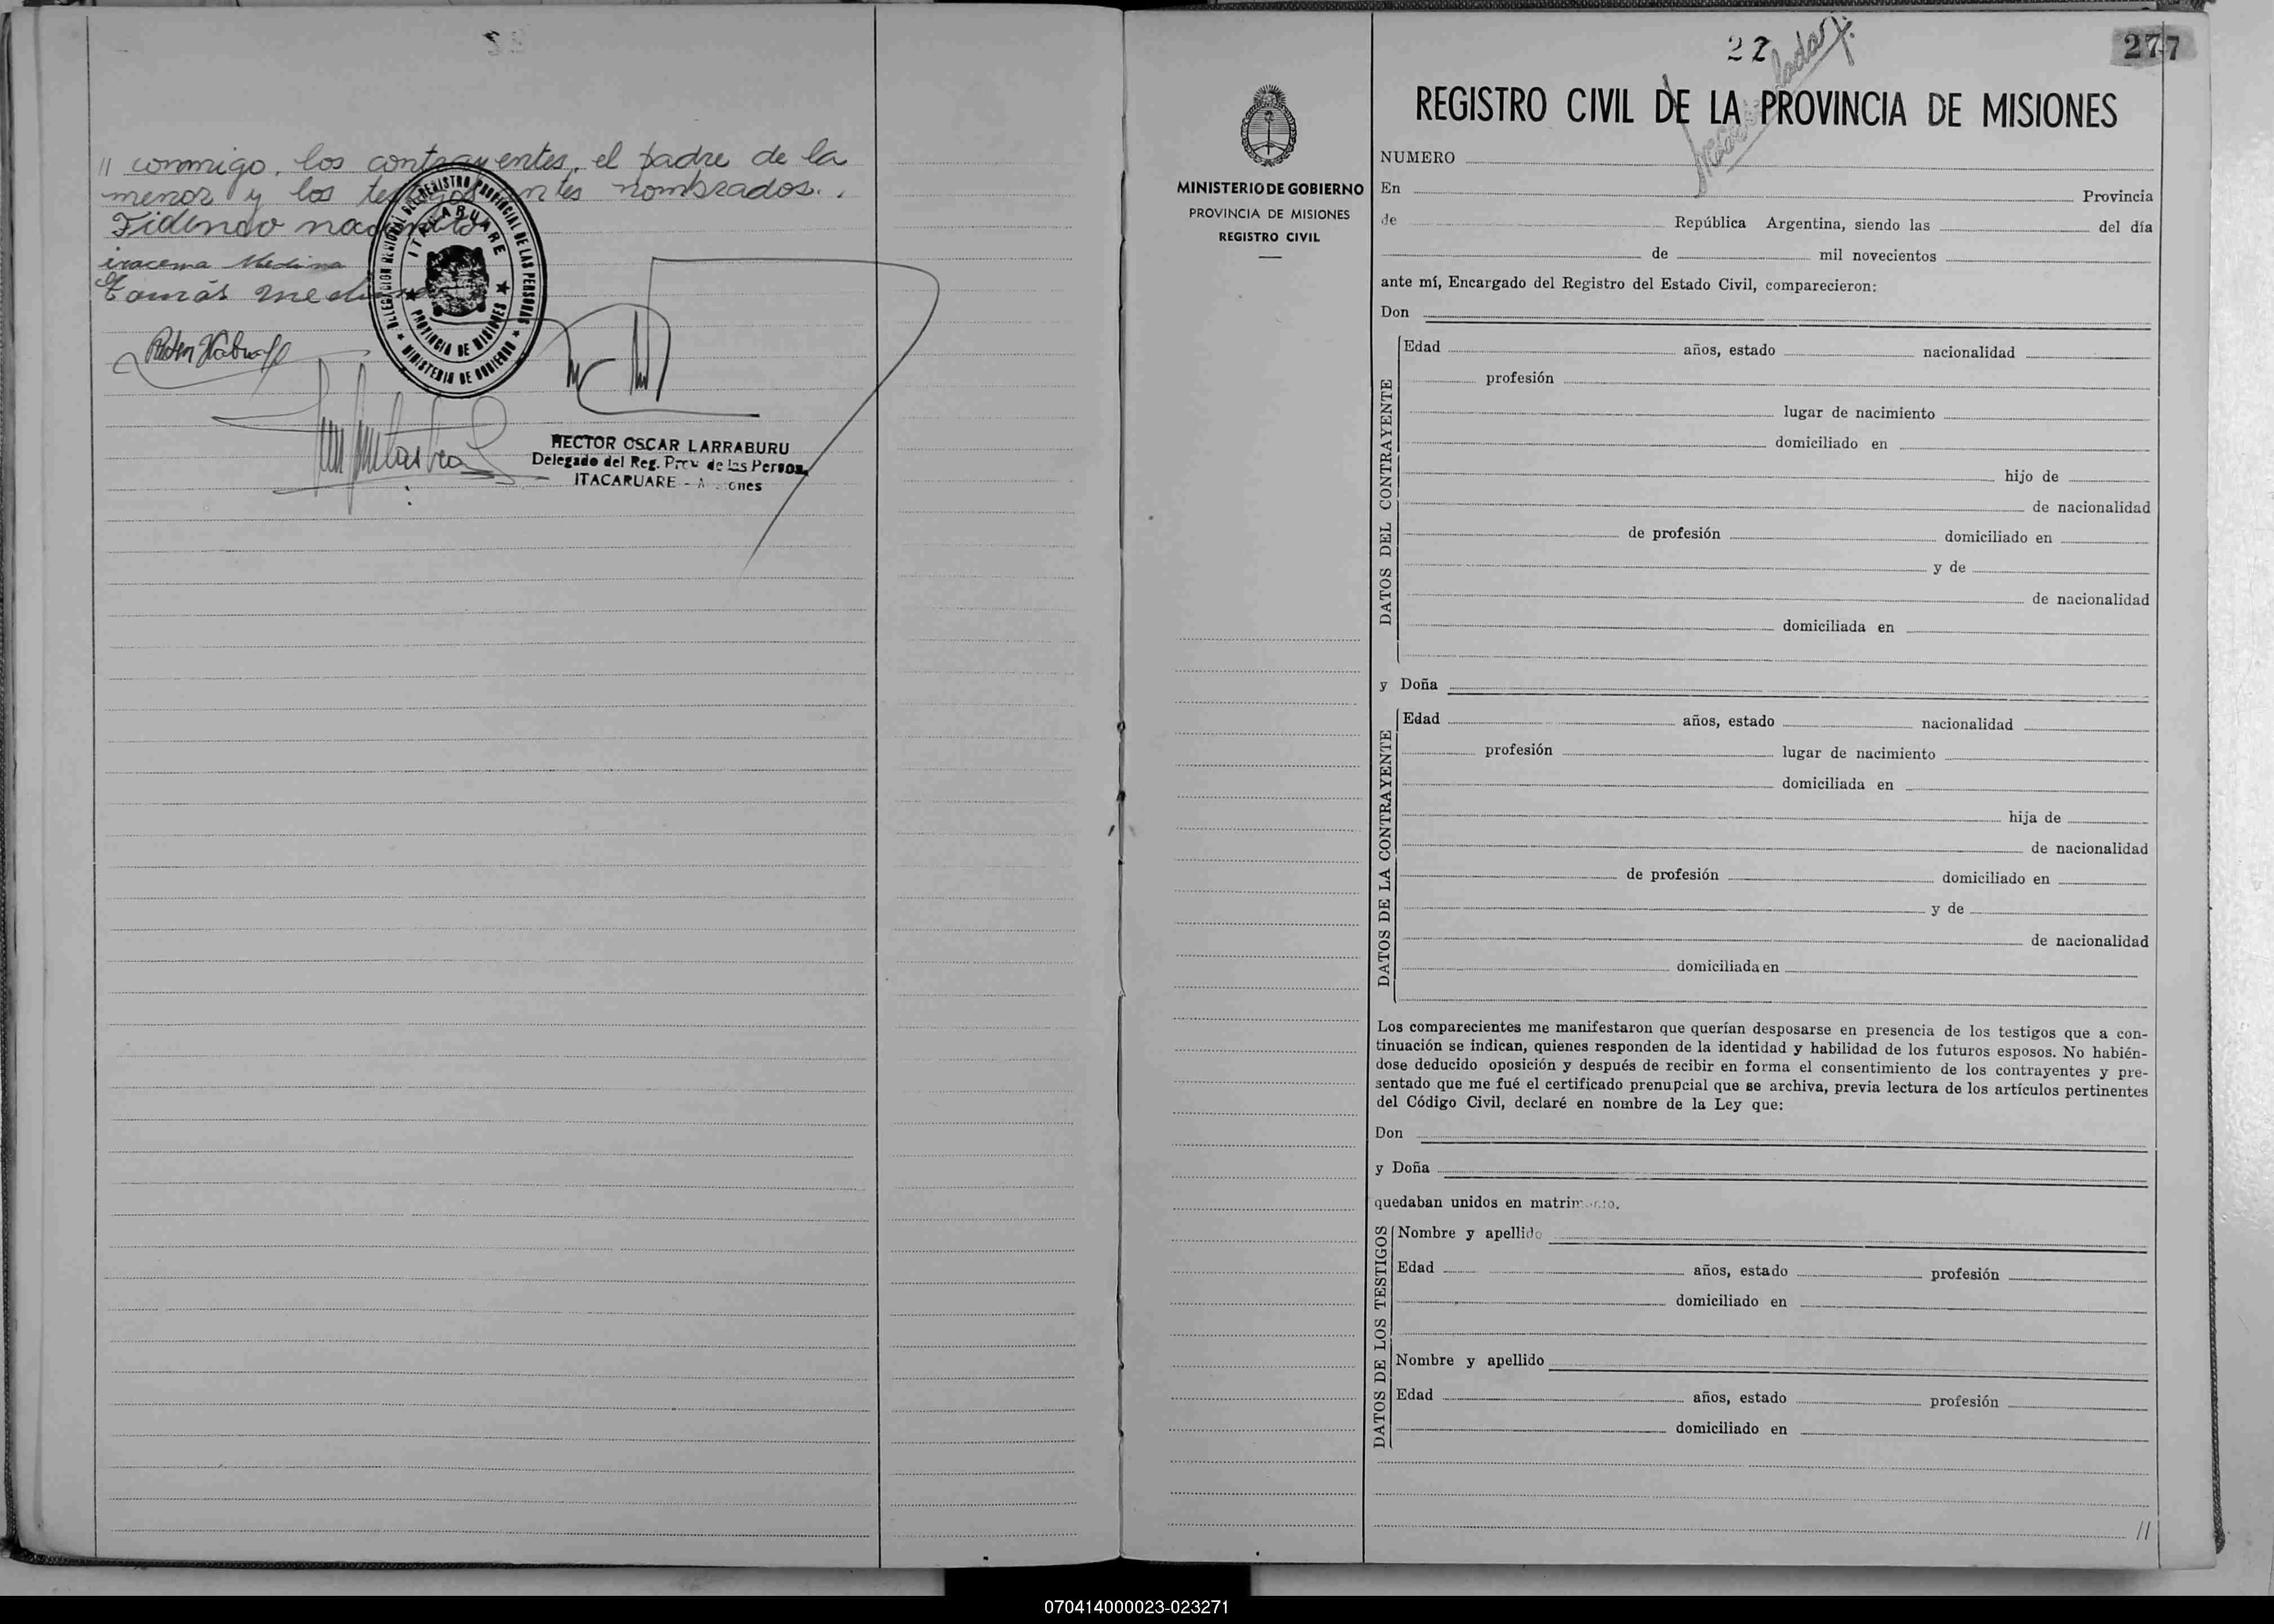 // conmigo, los contrayentes, el padre de la
menor y los testigos antes nombrados.
Tomás Medina
iracema Medina
DELEGACION REGIONAL DEL REGISTRO PROVINCIAL DE LAS PERSONAS
ITACARUARE
PROVINCIA DE MISIONES
MINISTERIO DE GOBIERNO
HECTOR OSCAR LARRABURU
Delegado del Reg. Prov de las Person.
ITACARUARE -
22
277
REGISTRO CIVIL DE LA PROVINCIA DE MISIONES
MINISTERIO DE GOBIERNO
PROVINCIA DE MISIONES
REGISTRO CIVIL
NUMERO
En Provincia
de República Argentina, siendo las del día
de mil novecientos
ante mí, Encargado del Registro del Estado Civil, comparecieron:
Don
DATOS DEL CONTRAYENTE
Edad años, estado nacionalidad
profesión
lugar de nacimiento
domiciliado en
hijo de
de nacionalidad
de profesión domiciliado en
y de
de nacionalidad
domiciliada en
y Doña
DATOS DE LA CONTRAYENTE
Edad años, estado nacionalidad
profesión lugar de nacimiento
domiciliada en
hija de
de nacionalidad
de profesión domiciliado en
y de
de nacionalidad
domiciliada en
Los comparecientes me manifestaron que querían desposarse en presencia de los testigos que a con-
tinuación se indican, quienes responden de la identidad y habilidad de los futuros esposos. No habién-
dose deducido oposición y después de recibir en forma el consentimiento de los contrayentes y pre-
sentado que me fué el certificado prenupcial que se archiva, previa lectura de los artículos pertinentes
del Código Civil, declaré en nombre de la Ley que:
Don
y Doña
quedaban unidos en matrimonio.
DATOS DE LOS TESTIGOS
Nombre y apellido
Edad años, estado profesión
domiciliado en
Nombre y apellido
Edad años, estado profesión
domiciliado en
//
070414000023-023271